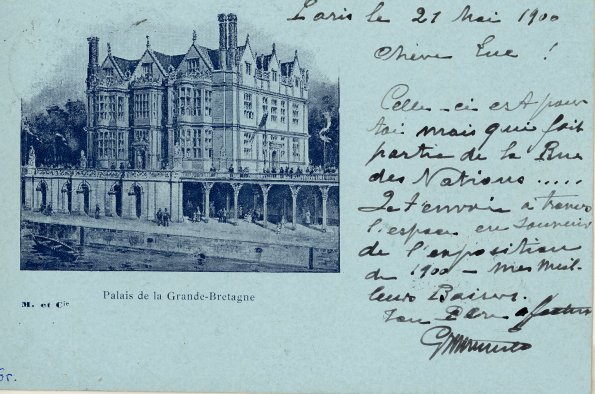 Paris le 21 Mai 1900
Chère Luc !
Celle-ci est pour
toi mais qui fait
partie de la Rue
des Nations .....
Je t'envoie à travers
l'espace un souvenir
de l'exposition
de 1900 - mes meil-
leurs Baisers.
Ton Père
Palais de la Grande-Bretagne
M. et Cie